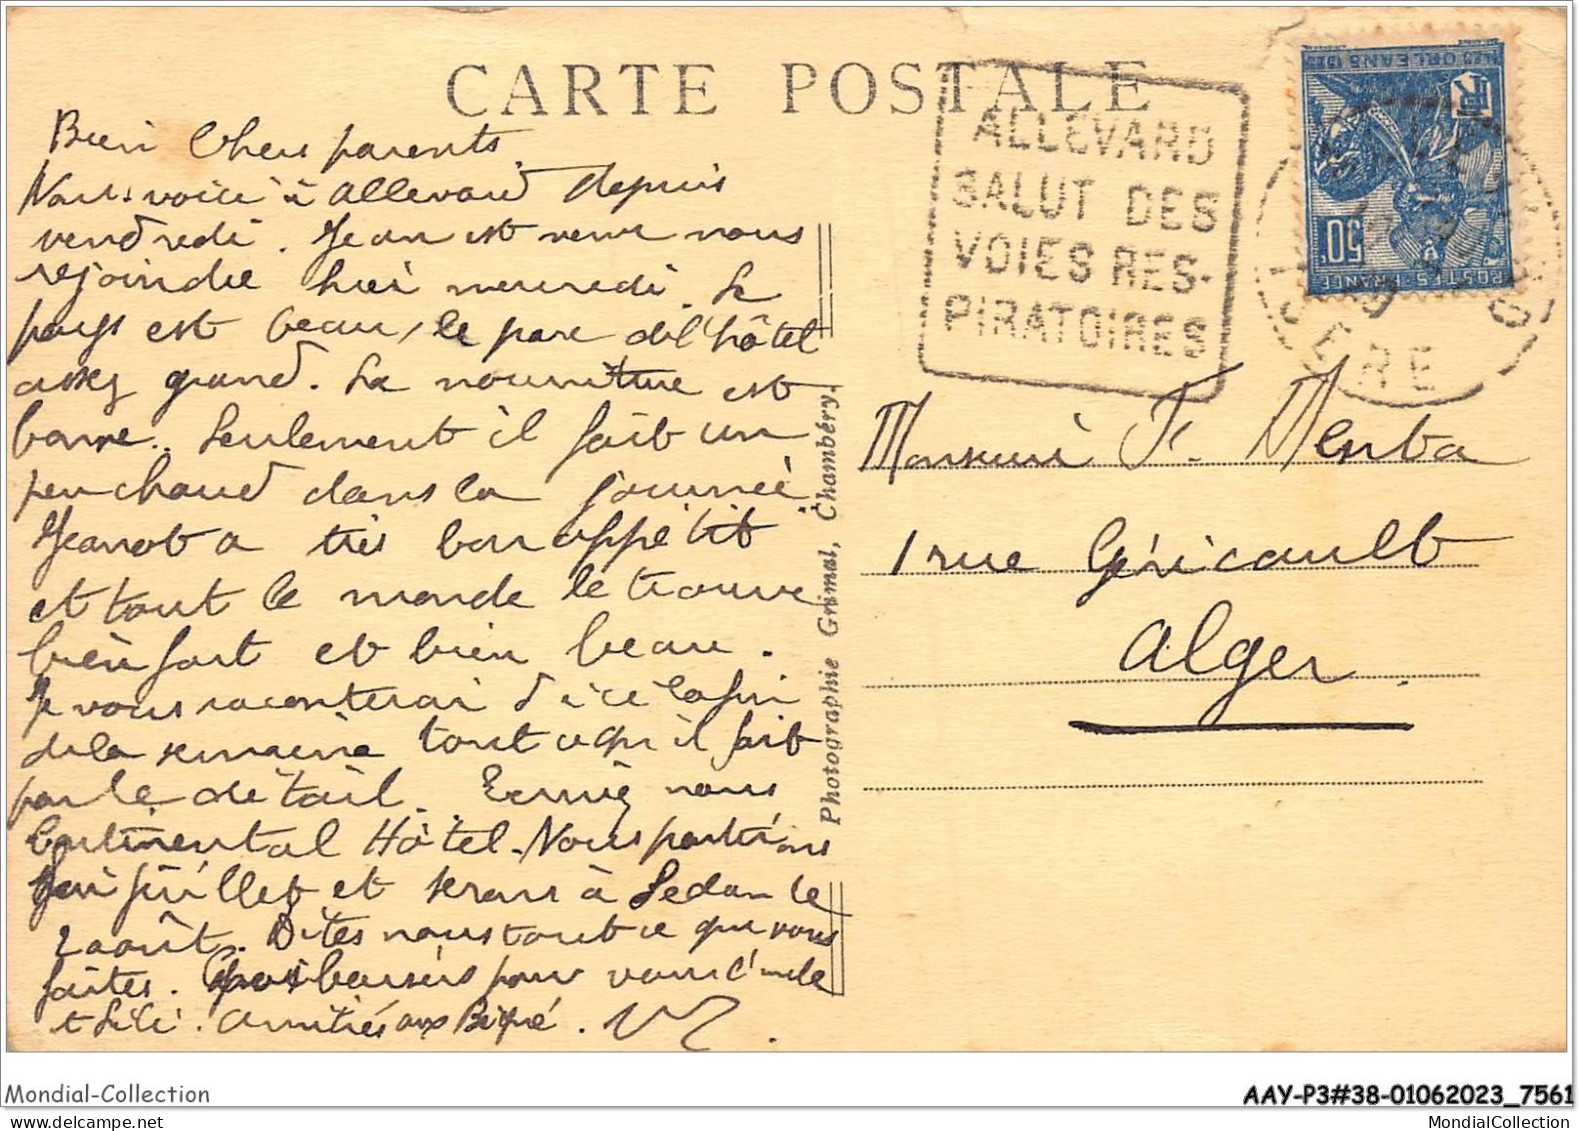 CARTE POSTALE
ALLEVARD
SALUT DES
VOIES RES-
PIRATOIRES
ORLEANS
RF
50c
POSTES-FRANCE
ISERE
Bien Chers parents
Nous voici à Allevard depuis
vendredi. Jean est venu nous
rejoindre hier mercredi. Le
pays est beau, le parc de l'hôtel
assez grand. La nourriture est
bonne. Seulement il fait un
peu chaud dans la journée
Jeannot a très bon appétit
et tout le monde le trouve
bien fort et bien beau.
Je vous raconterai d'ici la fin
de la semaine tout ce qu'il fait
par le détail. Ecrivez nous
Continental Hôtel. Nous partirons
fin juillet et serons à Sedan le
2 août. Dites nous tout ce que vous
faites. Gros baisers pour vous l'oncle
et Lili. Amitiés aux
Photographie Grimal, Chambéry.
Monsieur F. Menba
1 rue Géricault
Alger.
Mondial-Collection
AAY-P3#38-01062023_7561
MondialCollection